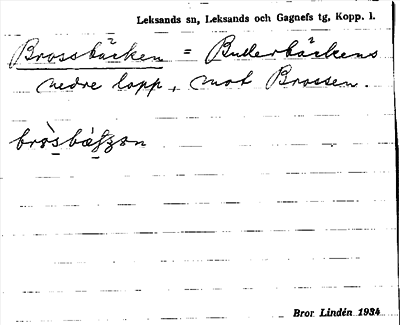 Leksands sn, Leksands och Gagnefs tg, Kopp. l.
Brossbäcken = Bullerbäckens
nedre lopp, mot Brossen.
Bror Lindén 1934